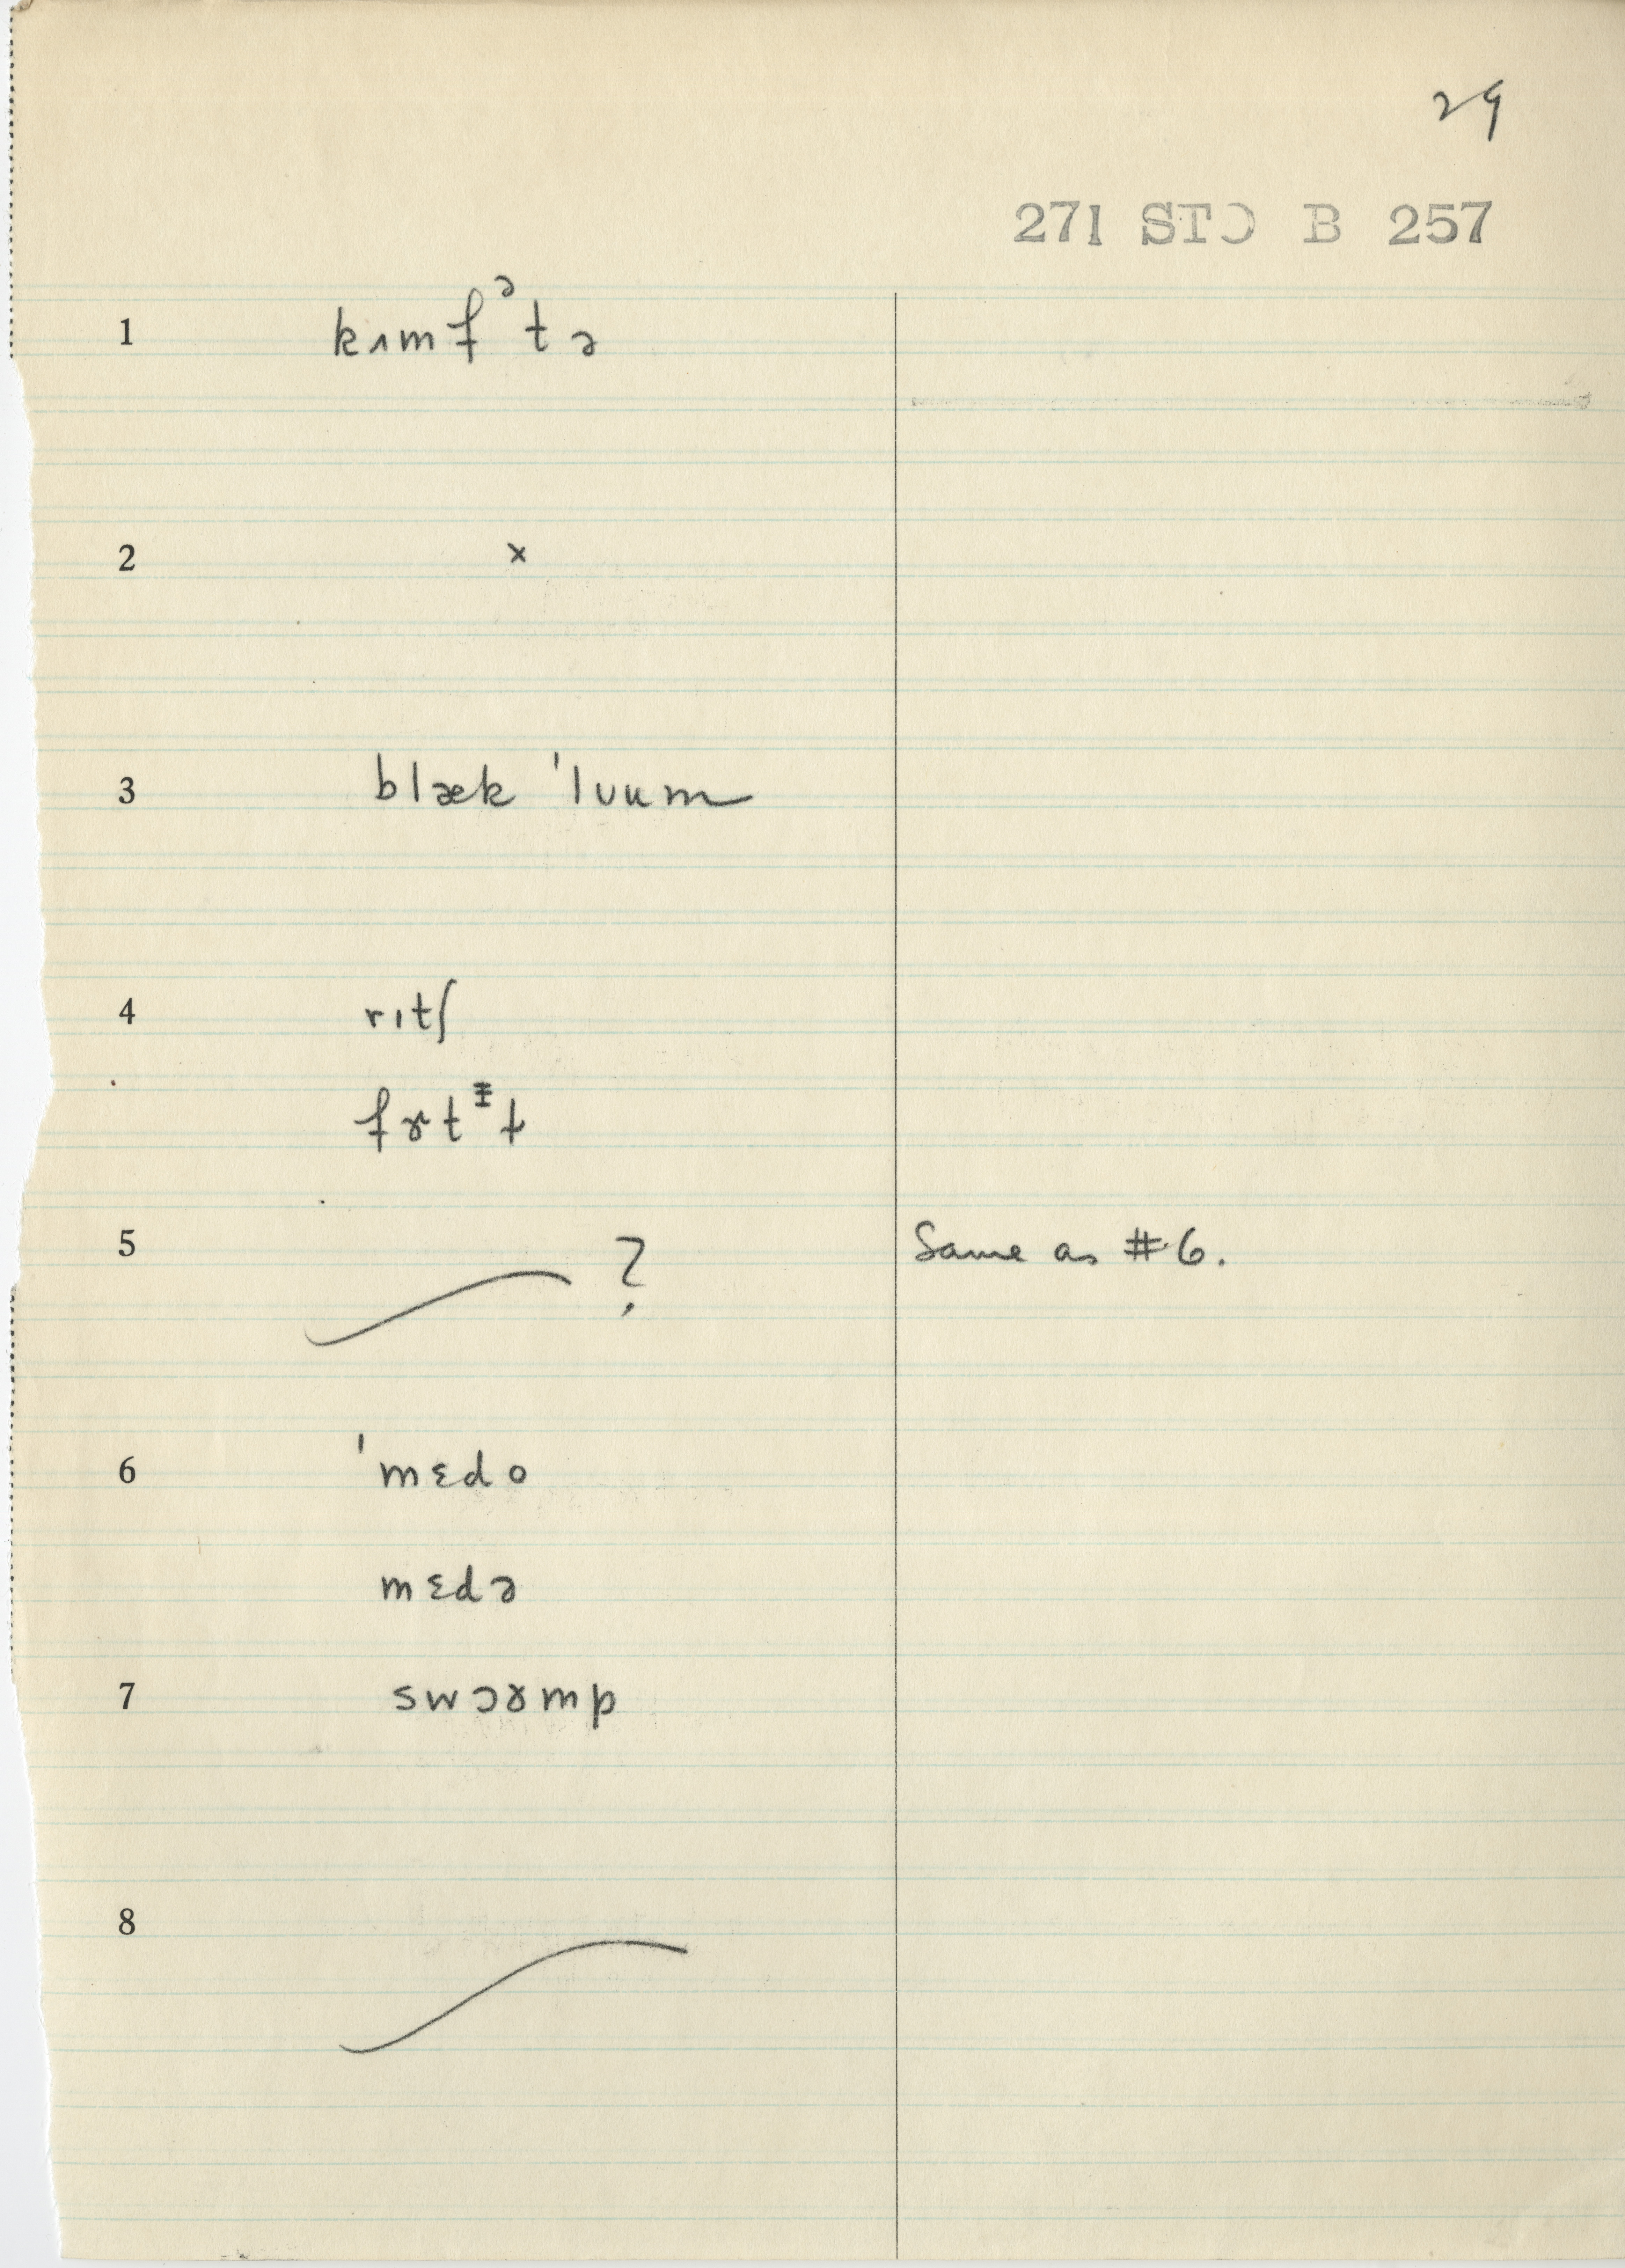 29
271 STƆ B 257
1 kɪmfᵊtə
2 ×
3 blæk ˈlʊum
4 rɪtʃ
fɤtᵻt
5 ? Same as #6.
6 ˈmɛdo
mɛdə
7 swɔɤmp
8